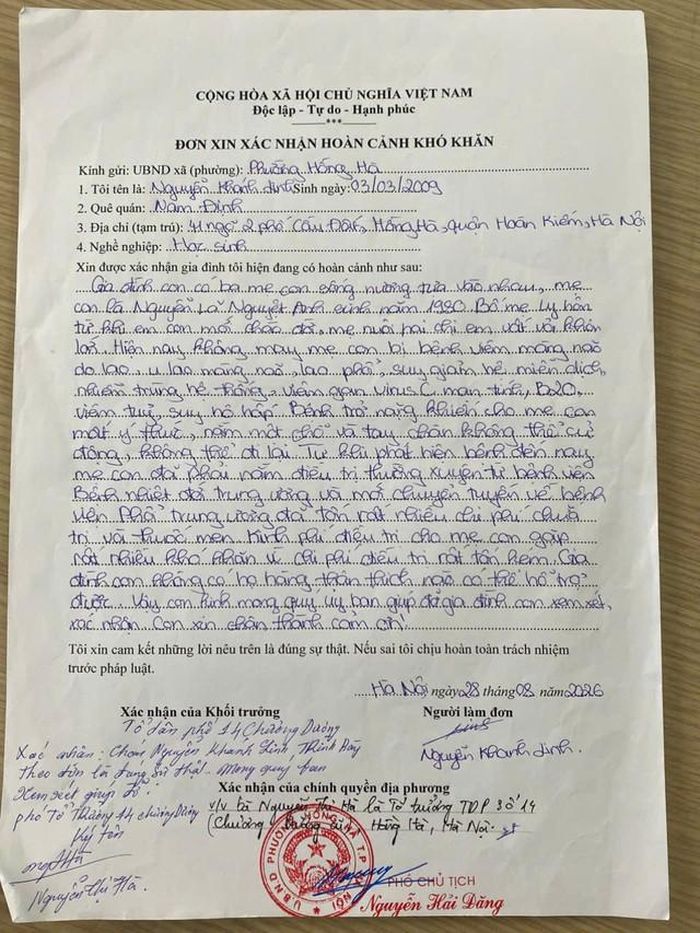 CỘNG HÒA XÃ HỘI CHỦ NGHĨA VIỆT NAM
Độc lập - Tự do - Hạnh phúc
***
ĐƠN XIN XÁC NHẬN HOÀN CẢNH KHÓ KHĂN
Kính gửi: UBND xã (phường): Phường Hồng Hà
1. Tôi tên là: Nguyễn Khánh Linh Sinh ngày: 03/03/2009
2. Quê quán: Nam Định
3. Địa chỉ (tạm trú): 41 ngõ 2 phố Cầu Đất, Hồng Hà, quận Hoàn Kiếm, Hà Nội
4. Nghề nghiệp: Học sinh
Xin được xác nhận gia đình tôi hiện đang có hoàn cảnh như sau:
Gia đình con có ba mẹ con sống nương tựa vào nhau, mẹ
con là Nguyễn Lã Nguyệt Anh sinh năm 1980. Bố mẹ ly hôn
từ khi em con mới chào đời, mẹ nuôi hai chị em vất vả khôn
lớn. Hiện nay không may mẹ con bị bệnh viêm màng não
do lao, u lao màng não, lao phổi, suy giảm hệ miễn dịch,
nhiễm trùng hệ thống, viêm gan virus C mạn tính, B20,
viêm tuỷ, suy hô hấp. Bệnh trở nặng khiến cho mẹ con
mất ý thức, nằm một chỗ và tay chân không thể cử
động, không thể đi lại. Từ khi phát hiện bệnh đến nay
mẹ con đã phải nằm điều trị thường xuyên từ bệnh viện
Bệnh nhiệt đới trung ương và mới chuyển tuyến về bệnh
viện Phổi trung ương đã tốn rất nhiều chi phí chữa
trị và thuốc men. Kinh phí điều trị cho mẹ con gặp
rất nhiều khó khăn vì chi phí điều trị rất tốn kém. Gia
đình con không có họ hàng thân thích nào có thể hỗ trợ
được. Vậy con kính mong quý ủy ban giúp đỡ gia đình con xem xét,
xác nhận. Con xin chân thành cảm ơn!
Tôi xin cam kết những lời nêu trên là đúng sự thật. Nếu sai tôi chịu hoàn toàn trách nhiệm
trước pháp luật.
Hà Nội ngày 28 tháng 08 năm 2026
Xác nhận của Khối trưởng
Người làm đơn
Tổ dân phố 14 Chương Dương
Xác nhận: Cháu Nguyễn Khánh Linh Trình bày
theo đơn là đúng sự thật. Mong quý ban
Xem xét giúp đỡ!
phó Tổ Trưởng 14 chương Dương
Ký tên
Nguyễn Thị Hà.
Nguyễn Khánh Linh.
Xác nhận của chính quyền địa phương
v/v bà Nguyễn Thị Hà là Tổ trưởng TDP số 14
(Chương Dương cũ) Hồng Hà, Hà Nội.
UBND PHƯỜNG HỒNG HÀ T.P HÀ NỘI
PHÓ CHỦ TỊCH
Nguyễn Hải Đăng